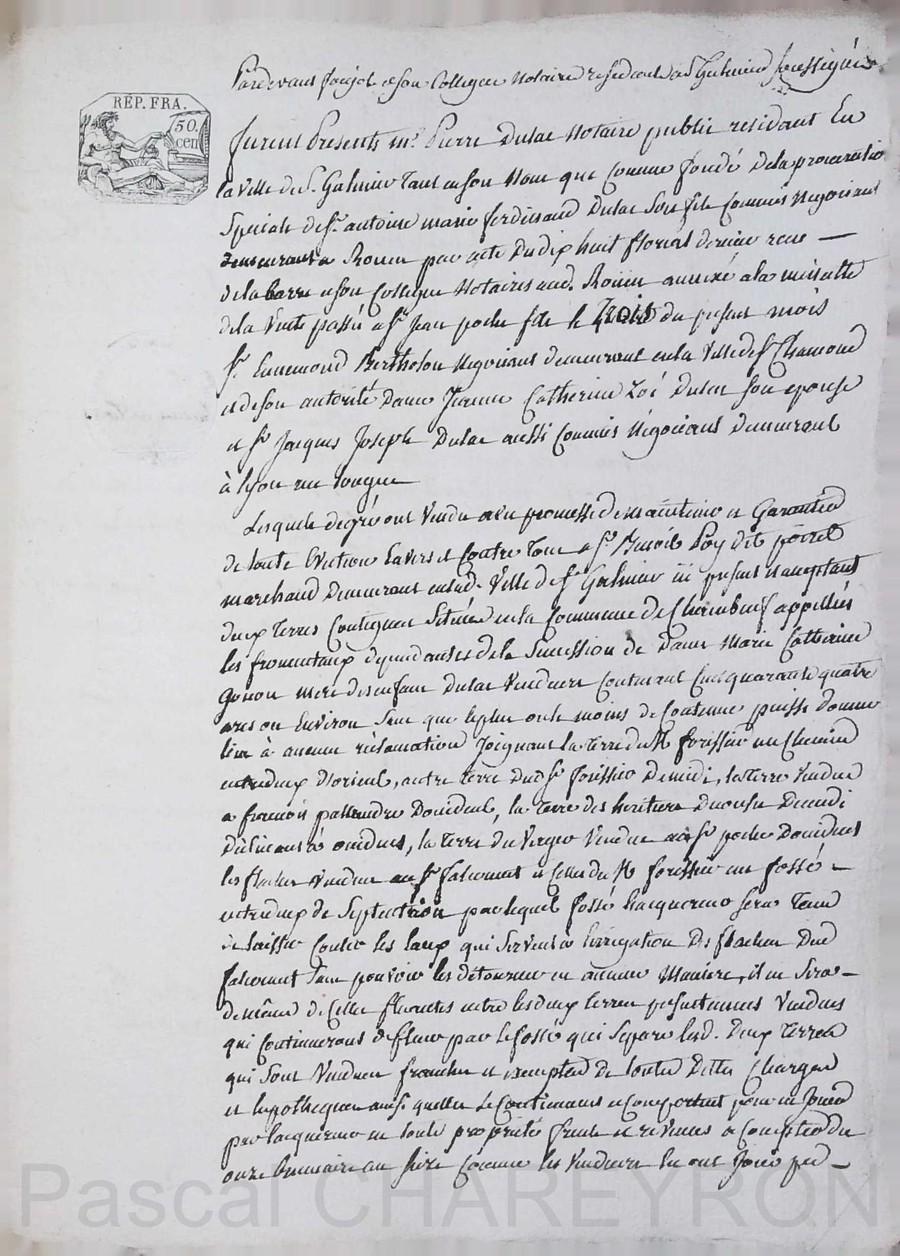 REP. FRA.
50.
cen
Pardevant et son Collegue Notaire residant a St Galmier soussignés
furent Presents me. Pierre Dulac Notaire public residant En
la Ville de St. Galmier tant en son Nom que Comme fondé de la procuration
Speciale de Sr. antoine marie ferdinand Dulac Son fils Commis Negociant
demeurant a Rouen par acte Du dix huit floreal dernier recu —
de la barre et son Collegue Notaires aud. Rouen annexé a la minutte
de la Vente passée a Sr. Jean poche fils le trois du present mois
Sr. Ennemond Bertholon Negociant demeurant en la Ville de St Chamond
et de son autorité Dame Jeanne Catherine Zoé Dulac Son epouse
et Sr. Jacques Joseph Dulac aussi Commis Négociant Demeurant
à lyon rue longue
Lesquels de gré ont Vendu avec promesse de maintenir et Garantir
de toute Eviction Envers et Contre Tous a Sr. Benoit dit
marchand Demeurant en lad. Ville de St Galmier ici present et acceptant
deux Terres Contigues Situées en la Commune de Chambeuf appellées
les fromentaux dependantes de la Succession de Dame Marie Catherine
gonon mere des enfans Dulac Vendeurs Contenant quarante quatre
ares ou Environ Sans que le plus ou le moins de Contenue puisse donner
lieu à aucune réclamation Joignant la terre du Sr forissier un Chemin
entredeux D'orient, autre terre Dud Sr forissier De midi, la terre Vendue
a D'occident, la terre des heritiers De midi
la terre du Verger Vendue au Sr poche D'occident
les flaches Vendues au Sr falconnet et Celle du Sr forissier un fossé —
entredeux de Septentrion par lequel fossé L'acquereur sera Tenu
de laisser Couler les Eaux qui Servent a L'irrigation Des flaches Dud
falconnet Sans pouvoir les détourner en aucune Maniere, il en Sera —
de même de Celles fluantes entre les deux terres presentement Vendues
qui Continueront de fluer par le fossé qui Separe lesd. Deux Terres
qui Sont Vendues franches et exemptes de toutes Dettes Charges
et hypotheques ainsi quelles Se Contiennent et Comportent pour en Jouir
par l'acquereur en toute propriété fruits et revenus a Compter du
onze brumaire an Seize Comme les Vendeurs En ont Joui —
Pascal CHAREYRON